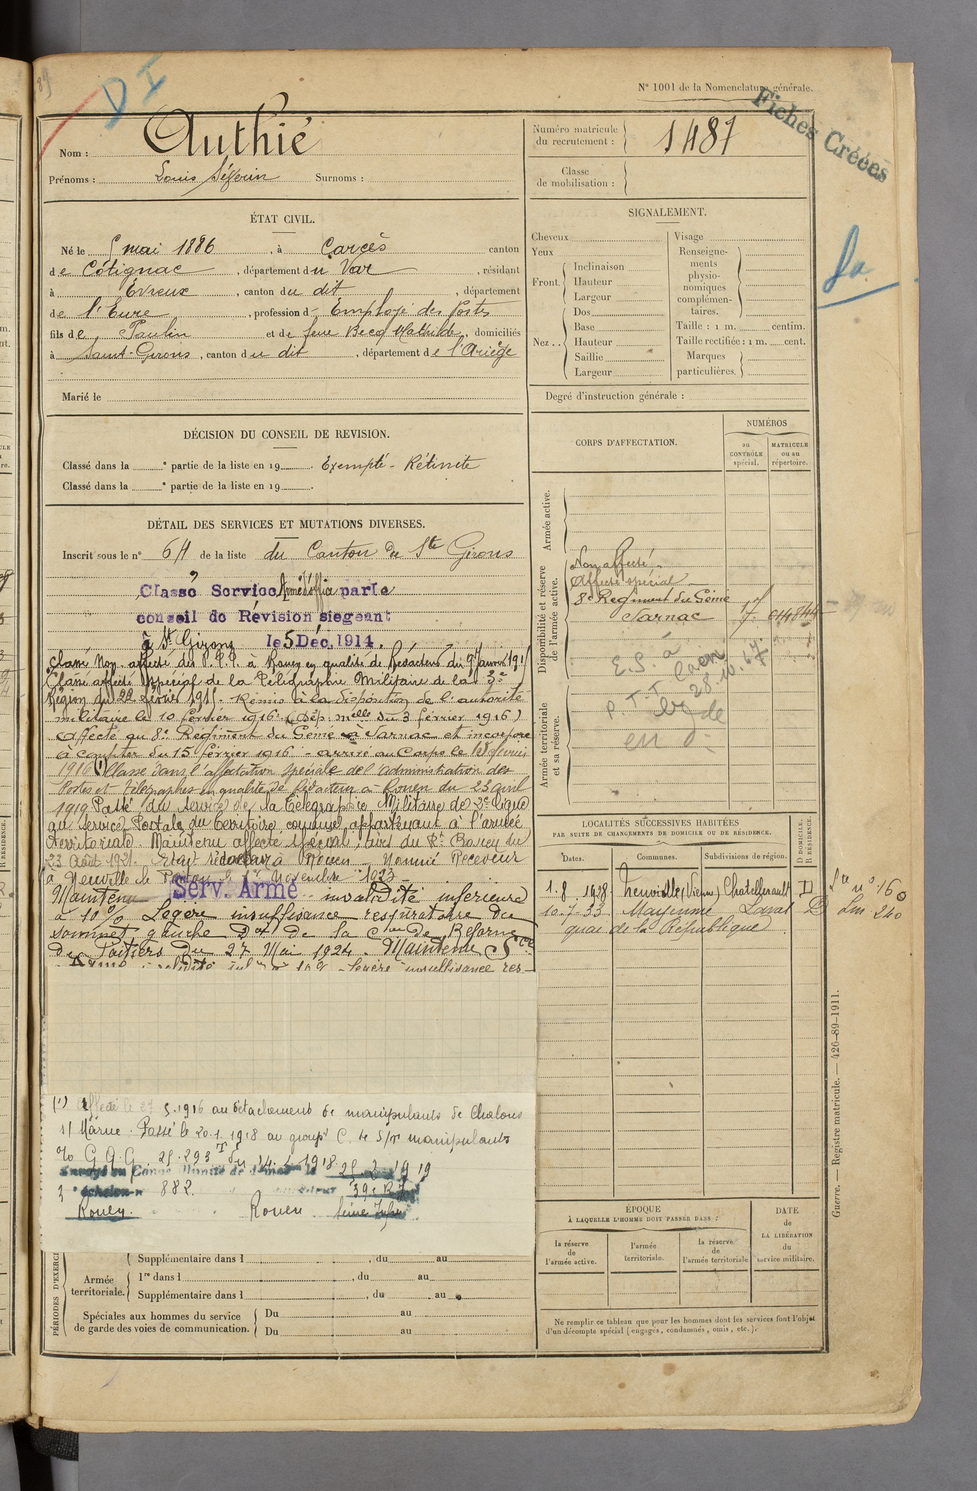 D I
N° 1001 de la Nomenclature générale.
Fiches Créées
Nom : Authié
Prénoms : Louis Séverin Surnoms :
Numéro matricule du recrutement : 1487
Classe de mobilisation :
ÉTAT CIVIL.
Né le 5 mai 1886, à Carcès canton
de Cotignac, département du Var, résidant
à Evreux, canton du dit, département
de l'Eure, profession d' Employé des Postes
fils de Paulin et de feue Becq Mathilde, domiciliés
à Saint-Girons, canton du dit, département de l'Ariège
Marié le
SIGNALEMENT.
Cheveux
Yeux
Front. Inclinaison
Hauteur
Largeur
Nez .. Dos
Base
Hauteur
Saillie
Largeur
Visage
Renseignements physionomiques complémentaires.
Taille : 1 m. centim.
Taille rectifiée : 1 m. cent.
Marques particulières.
Degré d'instruction générale :
DÉCISION DU CONSEIL DE REVISION.
Classé dans la e partie de la liste en 19 . Exempté - Rétinite
Classé dans la e partie de la liste en 19 .
DÉTAIL DES SERVICES ET MUTATIONS DIVERSES.
Inscrit sous le n° 64 de la liste du Canton de St Girons
Classé Service par le
conseil de Révision siegeant
à St Girons le 5 Déc. 1914.
Classé Non affecté des P.T.T. à Rouen en qualité de Rédacteur du
Classé affecté spécial de la Télégraphie Militaire de la 3e
Région du 22 février 191 . Remis à la disposition de l'autorité
militaire le 10 février 1916 (Dép. mlle du 3 février 1916)
Affecté au 8e Régiment du Génie à Jarnac et incorporé
à compter du 15 février 1916 - arrivé au Corps le février
1916 (1) Classé dans l'affectation spéciale de l'administration des
Postes et télégraphes en qualité de Rédacteur à Rouen du 23 avril
1919 Passé du service de la télégraphie Militaire de 2e ligne
au service Postal du territoire comme appartenant à l'armée
territoriale. Maintenu affecté spécial
23 Août 1921. Rouen - Nommé Receveur
à Neuville de Poitou le 1er Novembre 1923
Maintenu Serv. Armé invalidité inférieure
à 10 % Légère insuffisance respiratoire du
sommet gauche Don de la Cion de Réforme
de Poitiers du 27 Mai 1924. Maintenu Sce
Armé : invalidité inf à 10 % - Légère insuffisance res-
(1) Affecté le 5.1916 au détachement de manipulants de Chalons
s/ Marne. Passé le 20.1.1918 au groupt C. de S/m manipulants
% G.Q.G. 25.293 T du 14.2.1918.
Envoyé en Congé illimité de démob le 25 2 1919
3e échelon n° 882
Rouen. Rouen Seine Infre
CORPS D'AFFECTATION.
NUMÉROS
au CONTRÔLE spécial.
MATRICULE ou au répertoire.
Armée active.
Disponibilité et réserve de l'armée active.
Non affecté
Affecté spécial
8e Régiment du Génie
Jarnac
E.S. à
Caen
P.T.T. 28.10.
Armée territoriale et sa réserve.
LOCALITÉS SUCCESSIVES HABITÉES
PAR SUITE DE CHANGEMENTS DE DOMICILE OU DE RÉSIDENCE.
Dates. Communes. Subdivisions de région. D DOMICILE. R RÉSIDENCE.
1.8.1928 Neuville (Vienne) Chatellerault D
10.7.33 Mayenne Laval D
quai de la République
Guerre. — Registre matricule. — 426-89-1911.
ÉPOQUE
À LAQUELLE L'HOMME DOIT PASSER DANS :
la réserve de l'armée active.
l'armée territoriale.
la réserve de l'armée territoriale
DATE de LA LIBÉRATION du service militaire.
PÉRIODES D'EXERCI
Armée territoriale.
Supplémentaire dans l , du au
1re dans l , du au
Supplémentaire dans l , du au
Spéciales aux hommes du service de garde des voies de communication.
Du au
Du au
Ne remplir ce tableau que pour les hommes dont les services font l'objet
d'un décompte spécial (engagés, condamnés, omis, etc.).